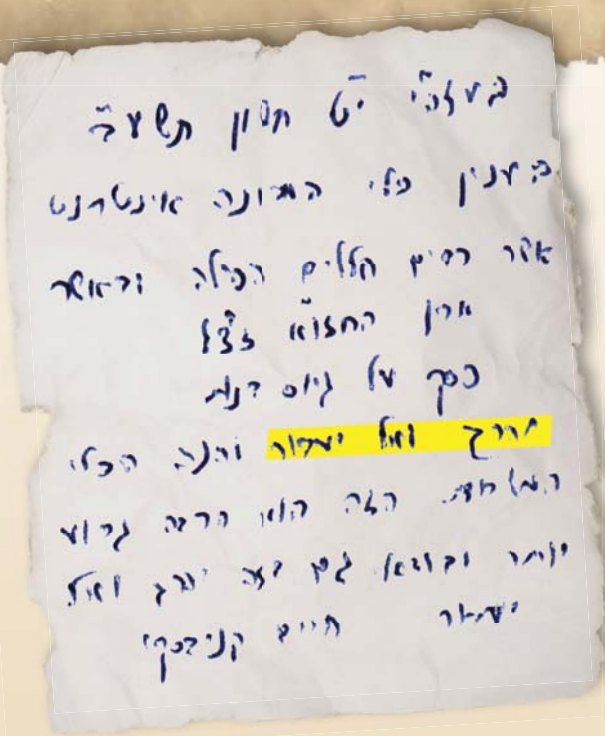 בעזה"י י"ט חשון תשע"ב
בענין כלי המכונה אינטרנט
אשר רבים חללים הפילה ובאשר
מרן החזו"א זצ"ל
פסק על גיוס בנות
יהרג ואל יעבור והנה הכלי
המשחית הזה הוא הרבה גרוע
יותר ובודאי גם בזה יהרג ואל
יעבור חיים קניבסקי